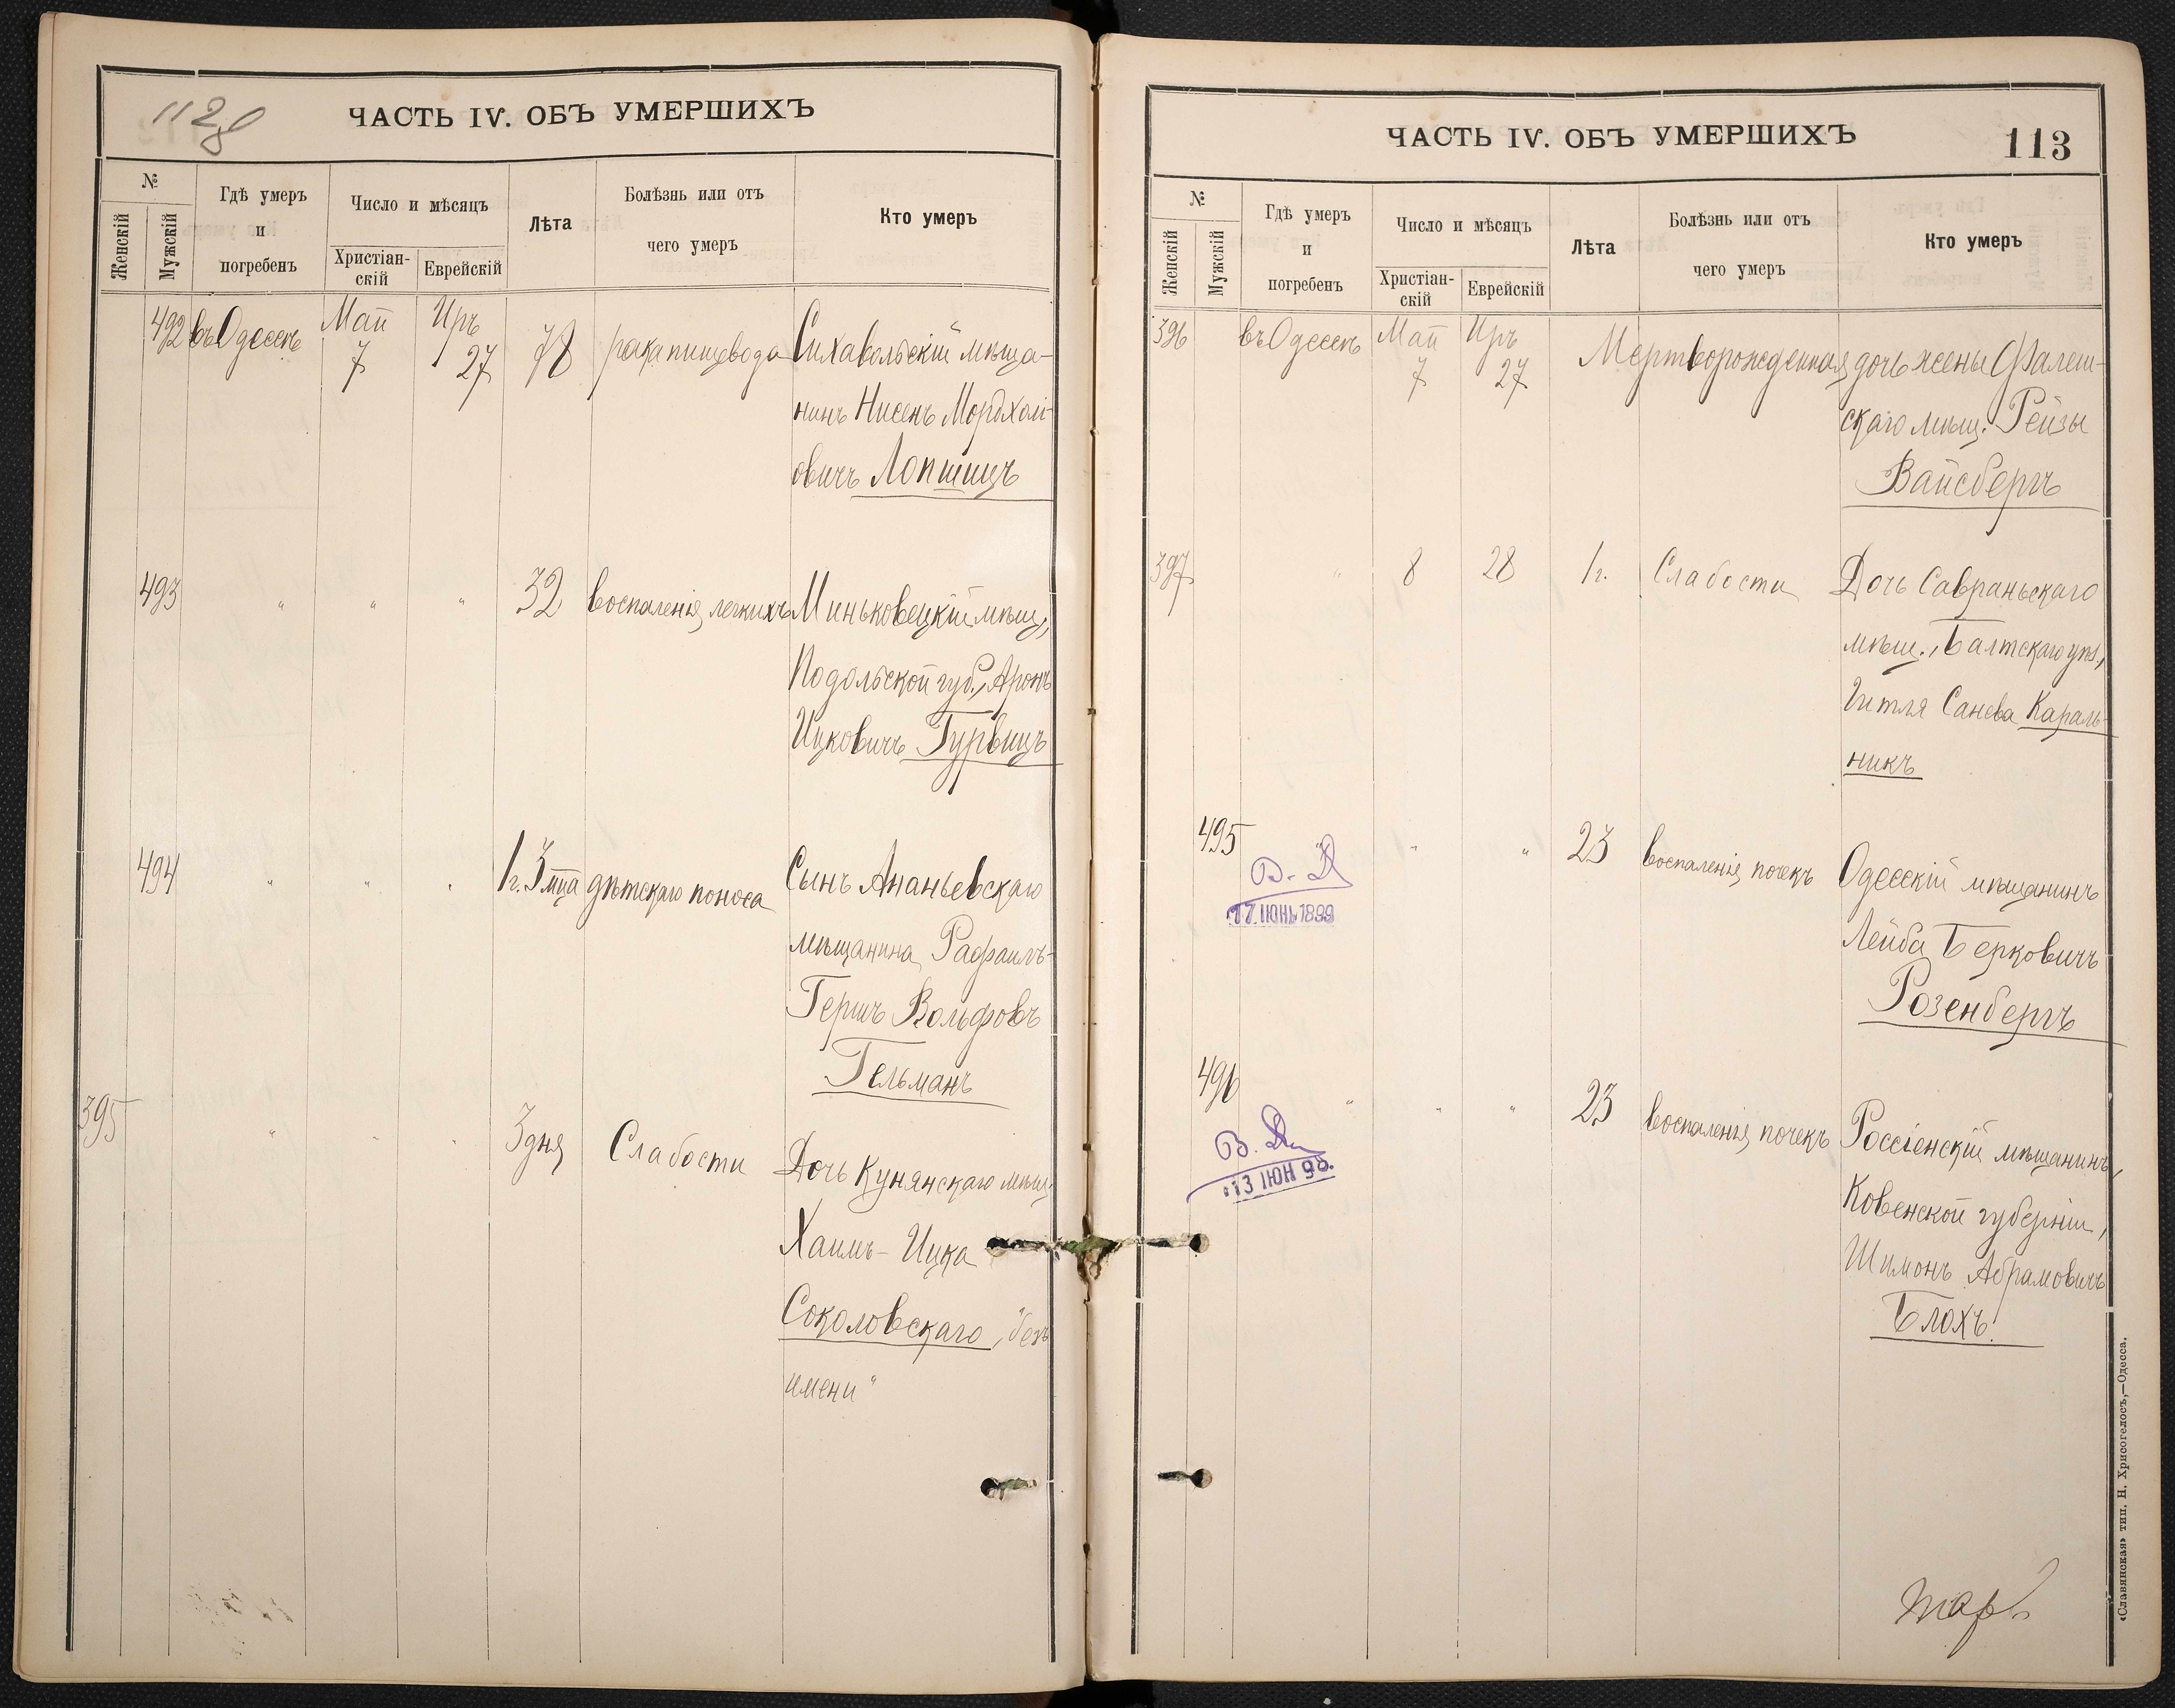 112
ЧАСТЬ IV. ОБЪ УМЕРШИХЪ
№
Женскій
Мужскій
Гдѣ умеръ
и
погребенъ
Число и мѣсяцъ
Христіан-
скій
Еврейскій
Лѣта
Болѣзнь или отъ
чего умеръ
Кто умеръ
492 въ Одессѣ Май 7 Иръ 27 78 рака пищевода Сихавольскій мѣща-
нинъ Нисенъ Мордхай-
овичъ Лопшицъ
493 " " " 32 воспаленія легкихъ Миньковецкій мѣщ.,
Подольской губ., Аронъ
Ицковичъ Гурвицъ
494 " " " 1 г. 3 мца дѣтскаго поноса Сынъ Ананьевскаго
мѣщанина Рафаилъ-
Гершъ Вольфовъ
Гельманъ
395 " " " 3 дня Слабости Дочь Кунянскаго мѣщ.
Хаимъ-Ицка
Соколовскаго, "безъ
имени"
ЧАСТЬ IV. ОБЪ УМЕРШИХЪ
113
№
Женскій
Мужскій
Гдѣ умеръ
и
погребенъ
Число и мѣсяцъ
Христіан-
скій
Еврейскій
Лѣта
Болѣзнь или отъ
чего умеръ
Кто умеръ
396 въ Одессѣ Май 7 Иръ 27 Мертворожденная дочь жены Фалеш-
скаго мѣщ. Рейзы
Вайсбергъ
397 " 8 28 1 г. Слабости Дочь Савраньскаго
мѣщ., Балтскаго уѣз.,
Гитля Санева Караль-
никъ
495 " " " 23 воспаленія почекъ Одесскій мѣщанинъ
Лейба Берковичъ
Розенбергъ
В. Д
17 ИЮНЬ 1899
496 " " " 23 воспаленія почекъ Россіенскій мѣщанинъ,
Ковенской губерніи,
Шимонъ Абрамовичъ
Блохъ.
В. Д
13 ИЮН 98.
«Славянская» тип. Н. Хрисогелосъ,—Одесса.